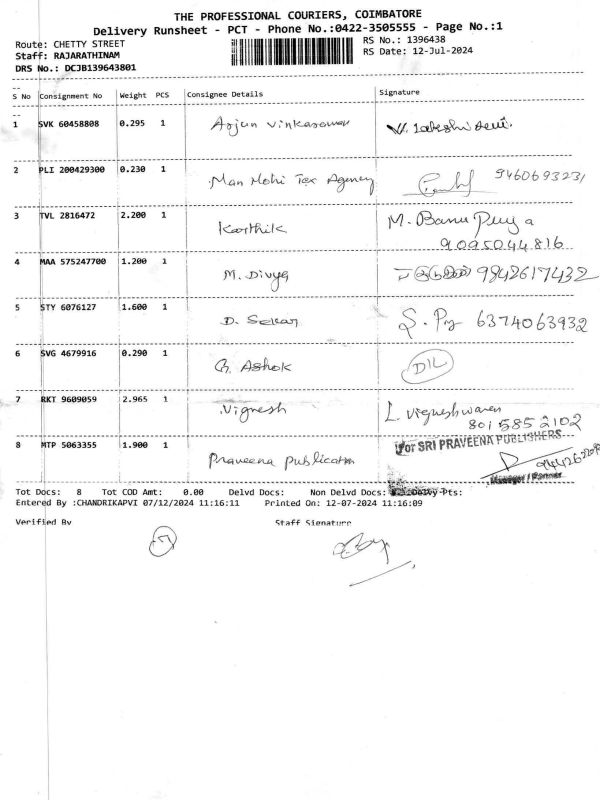 THE PROFESSIONAL COURIERS, COIMBATORE
Delivery Runsheet - PCT - Phone No.:0422-3505555 - Page No.:1
Route: CHETTY STREET
RS No.: 1396438
Staff: RAJARATHINAM
RS Date: 12-Jul-2024
DRS No.: DCJB139643801
S No Consignment No Weight PCS Consignee Details Signature
1 SVK 60458808 0.295 1 Arjun Vinkaraman
2 PLI 200429300 0.230 1 Man Mohi Tex Agency 9460693231
3 TVL 2816472 2.200 1 Karthik M. Banu Priya
9095044816
4 MAA 575247700 1.200 1 M. Divya 9842617432
5 STY 6076127 1.600 1 D. Sekar 6374063932
6 SVG 4679916 0.290 1 G. Ashok D/L
7 RKT 9609059 2.965 1 Vignesh L. Vigneshwaran
8015852102
8 MTP 5063355 1.900 1 Praveena Publication For SRI PRAVEENA PUBLISHERS
Manager / Partner
Tot Docs: 8 Tot COD Amt: 0.00 Delvd Docs: Non Delvd Docs: Pts:
Entered By :CHANDRIKAPVI 07/12/2024 11:16:11 Printed On: 12-07-2024 11:16:09
Verified By Staff Signature